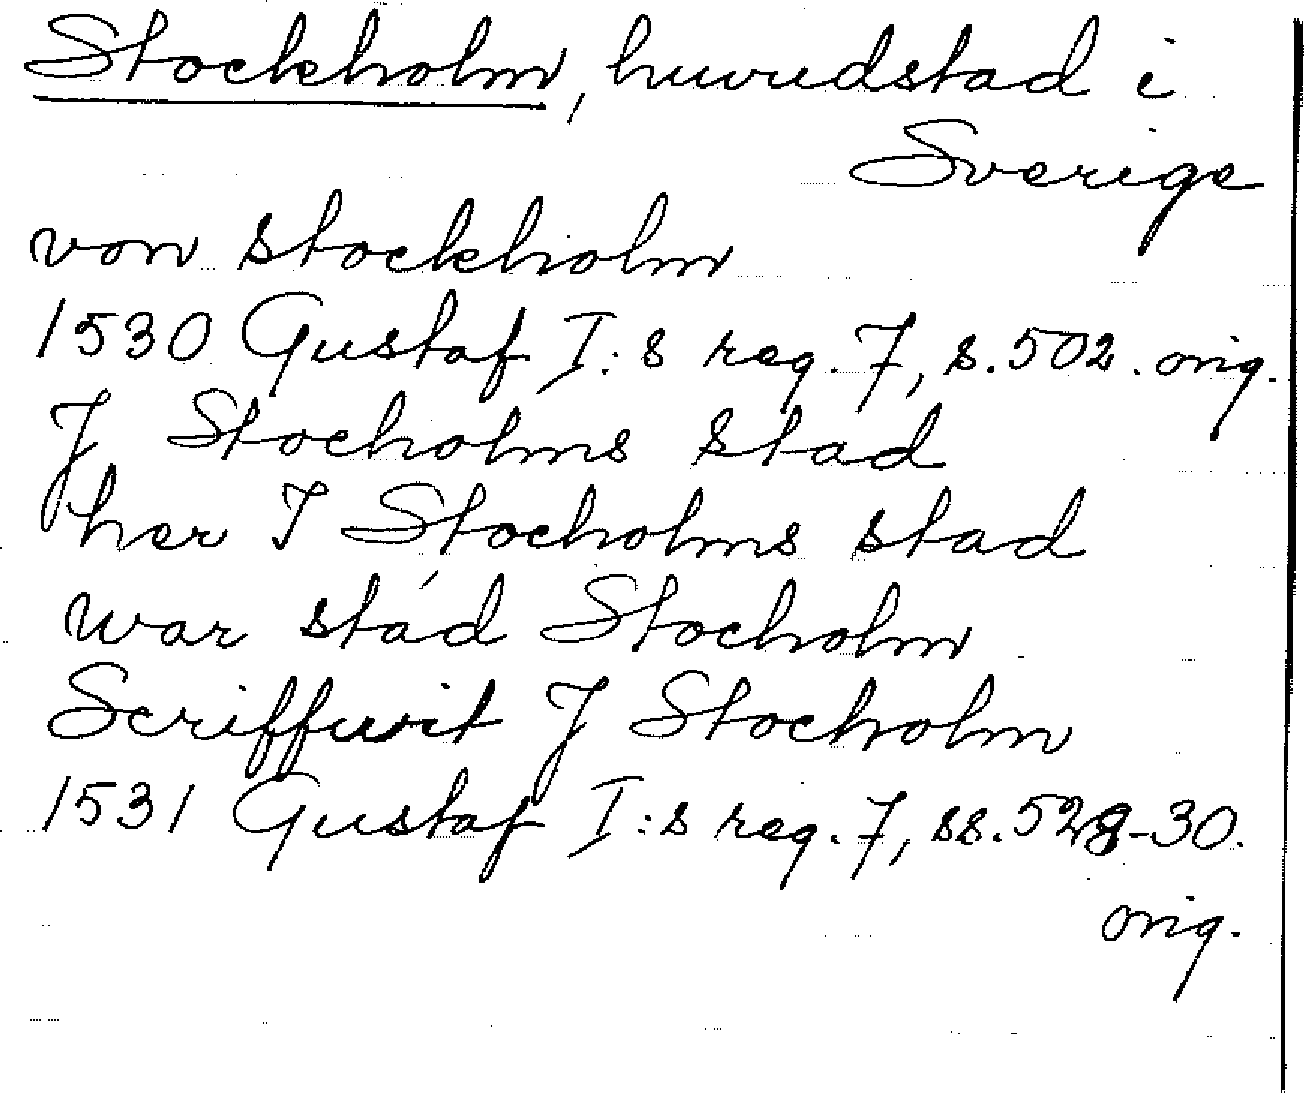 Stockholm, huvudstad i
Sverige
von stockholm
1530 Gustaf I:s reg. 7, s. 502. orig.
J Stocholms stad
her I Stocholms stad
war stád Stocholm
Scriffwit J Stocholm
1531 Gustaf I:s reg. 7, ss. 528-30.
orig.